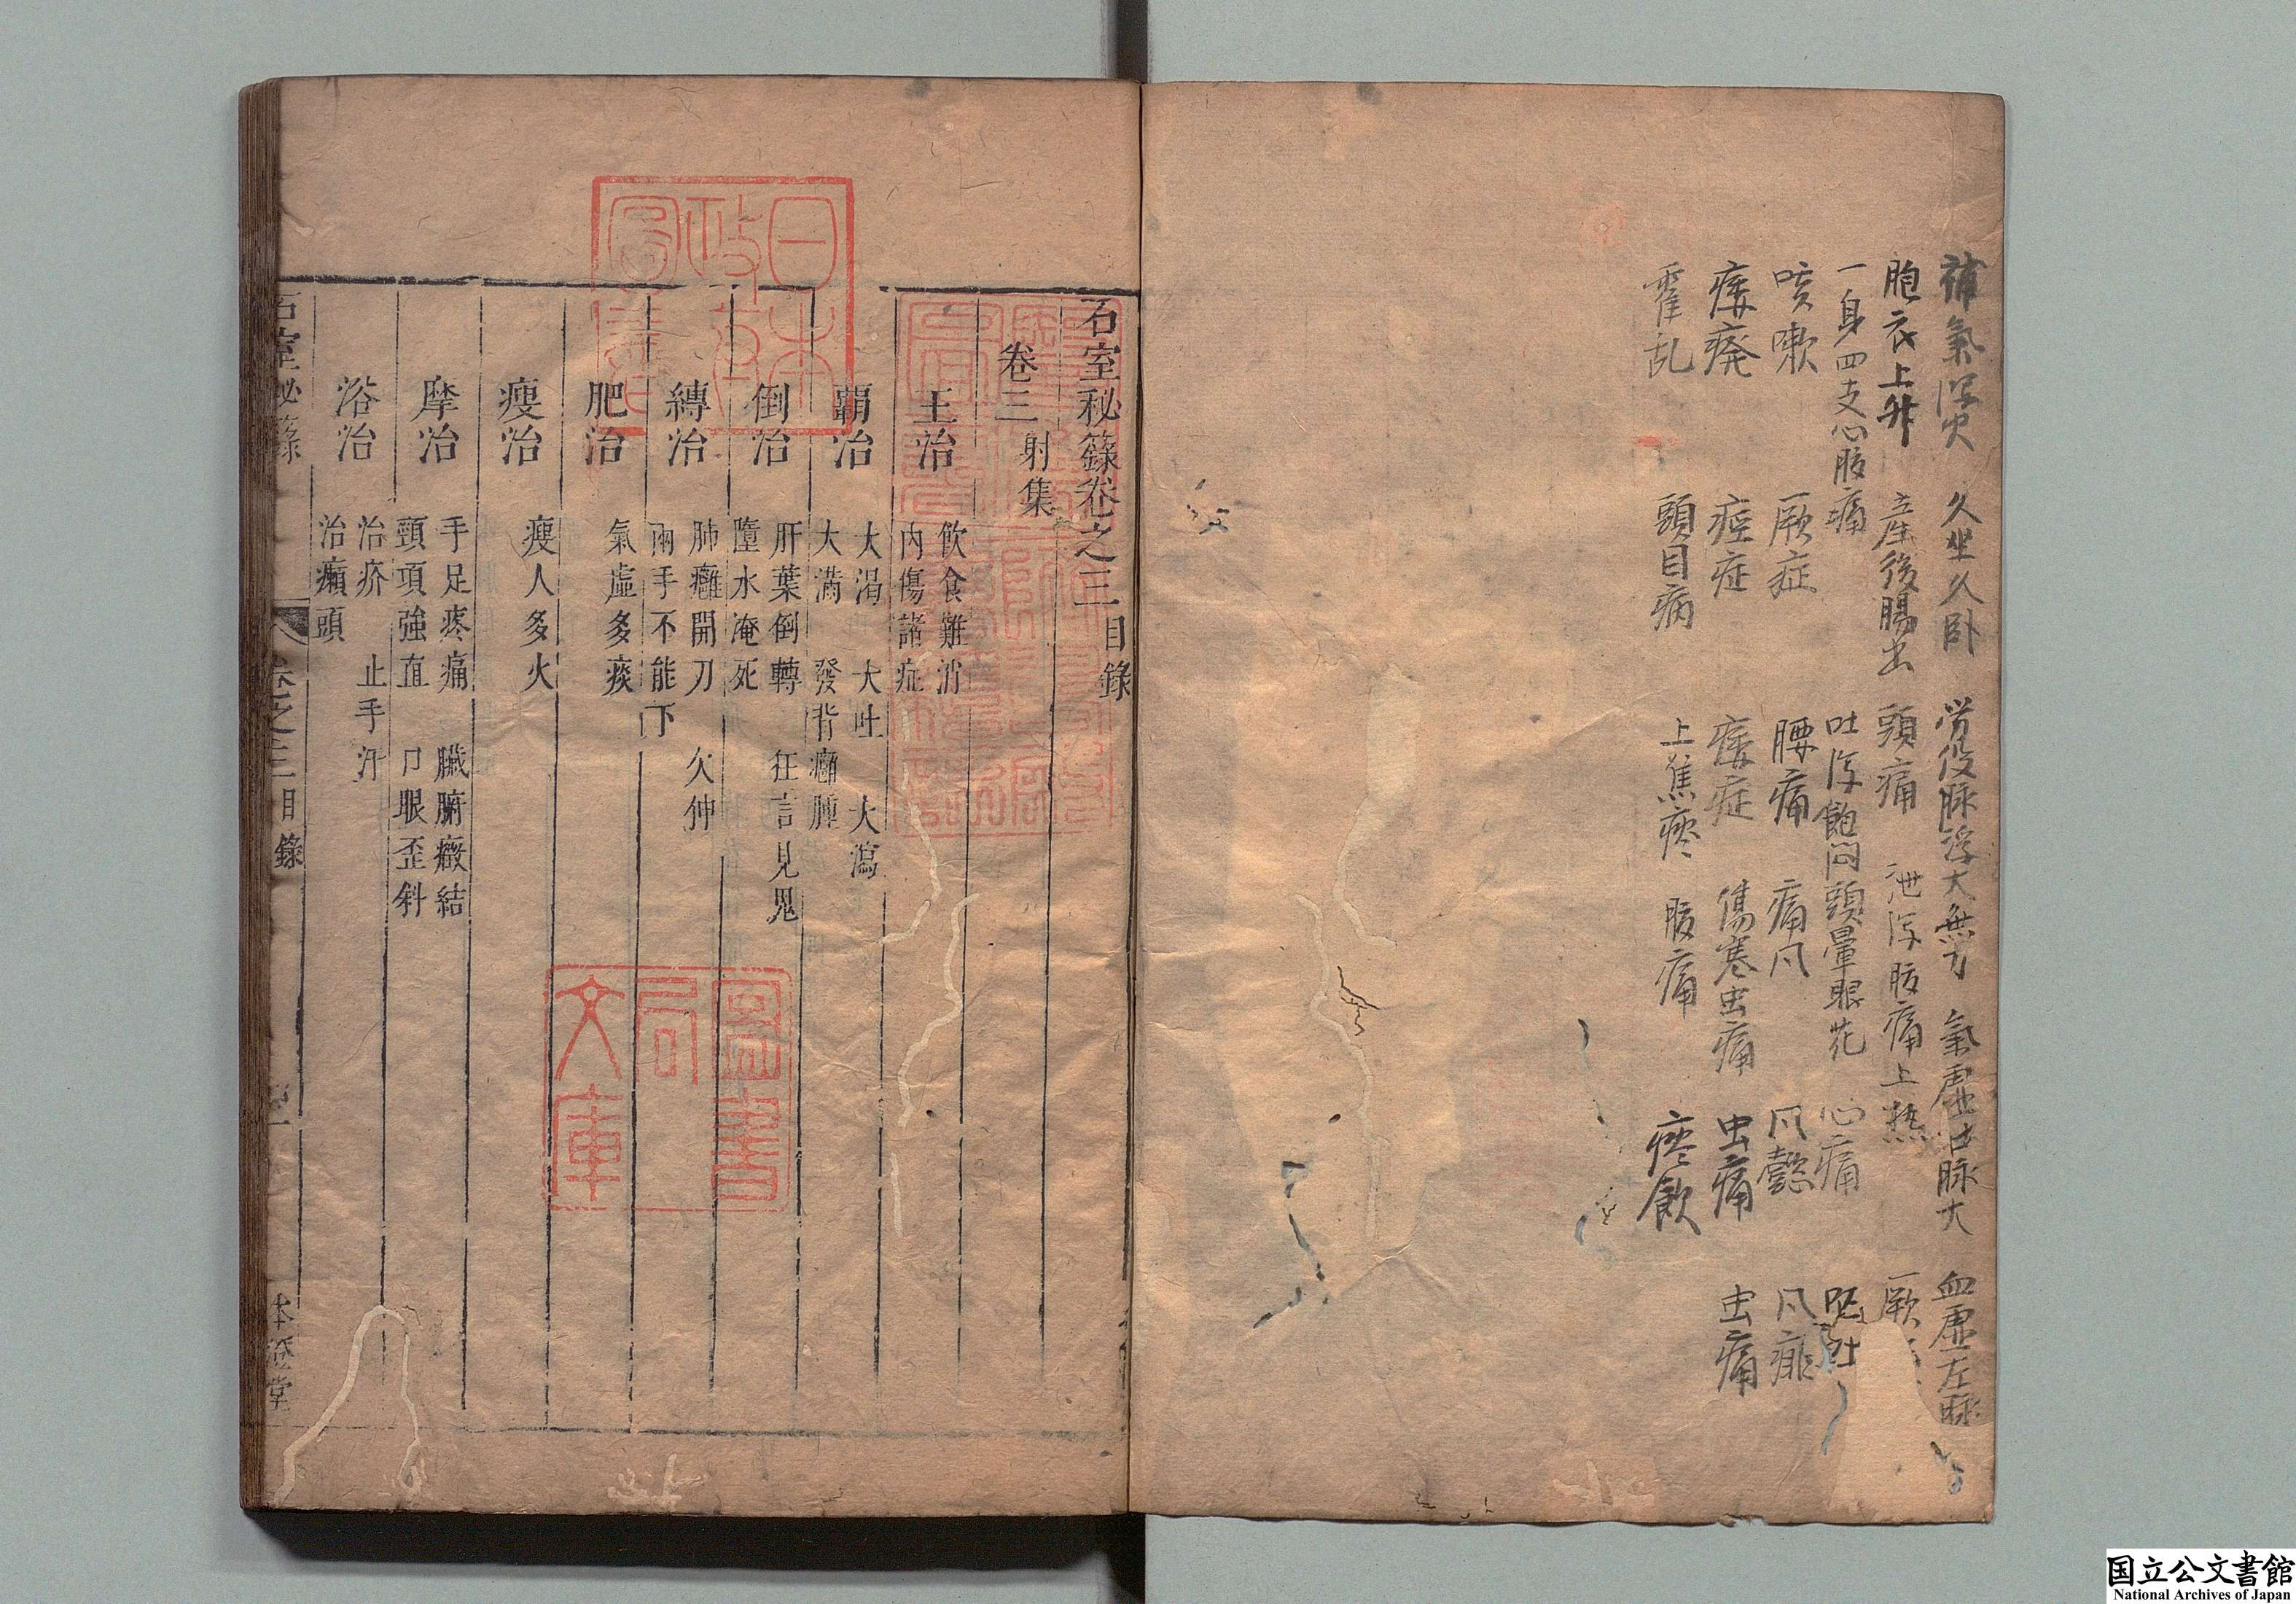 補氣瀉火 久坐久卧 労役脉浮大無力 氣虚右脉大 血虚左脉
胞衣上升 産後腸出 頭痛 泄瀉腹痛上熱 厥
一身四支心腹痛 吐瀉飽悶頭暈眼花 心痛 嘔吐
咳嗽 厥症 腰痛 痛风 风懿 风痱
痿癈 痙症 痿症 傷寒虫痛 虫痛 虫痛
霍乱 頭目病 上焦痰 腹痛 痰飲
石室秘籙卷之三目錄
卷三 射集
王治 飲食難消
内傷諸症
覇治 大渴 大吐 大瀉
大滿 發背癰腫
倒治 肝葉倒轉 狂言見鬼
墮水淹死
縛治 肺癰開刀 欠伸
兩手不能下
肥治 氣虛多痰
瘦治 瘦人多火
摩治 手足疼痛 臟腑癥結
頭項強直 口眼歪斜
浴治 治疥 止手汗
治癩頭
石室秘籙 卷之三目錄 本澄堂
日本政府圖書
圖書局文庫
国立公文書館
National Archives of Japan